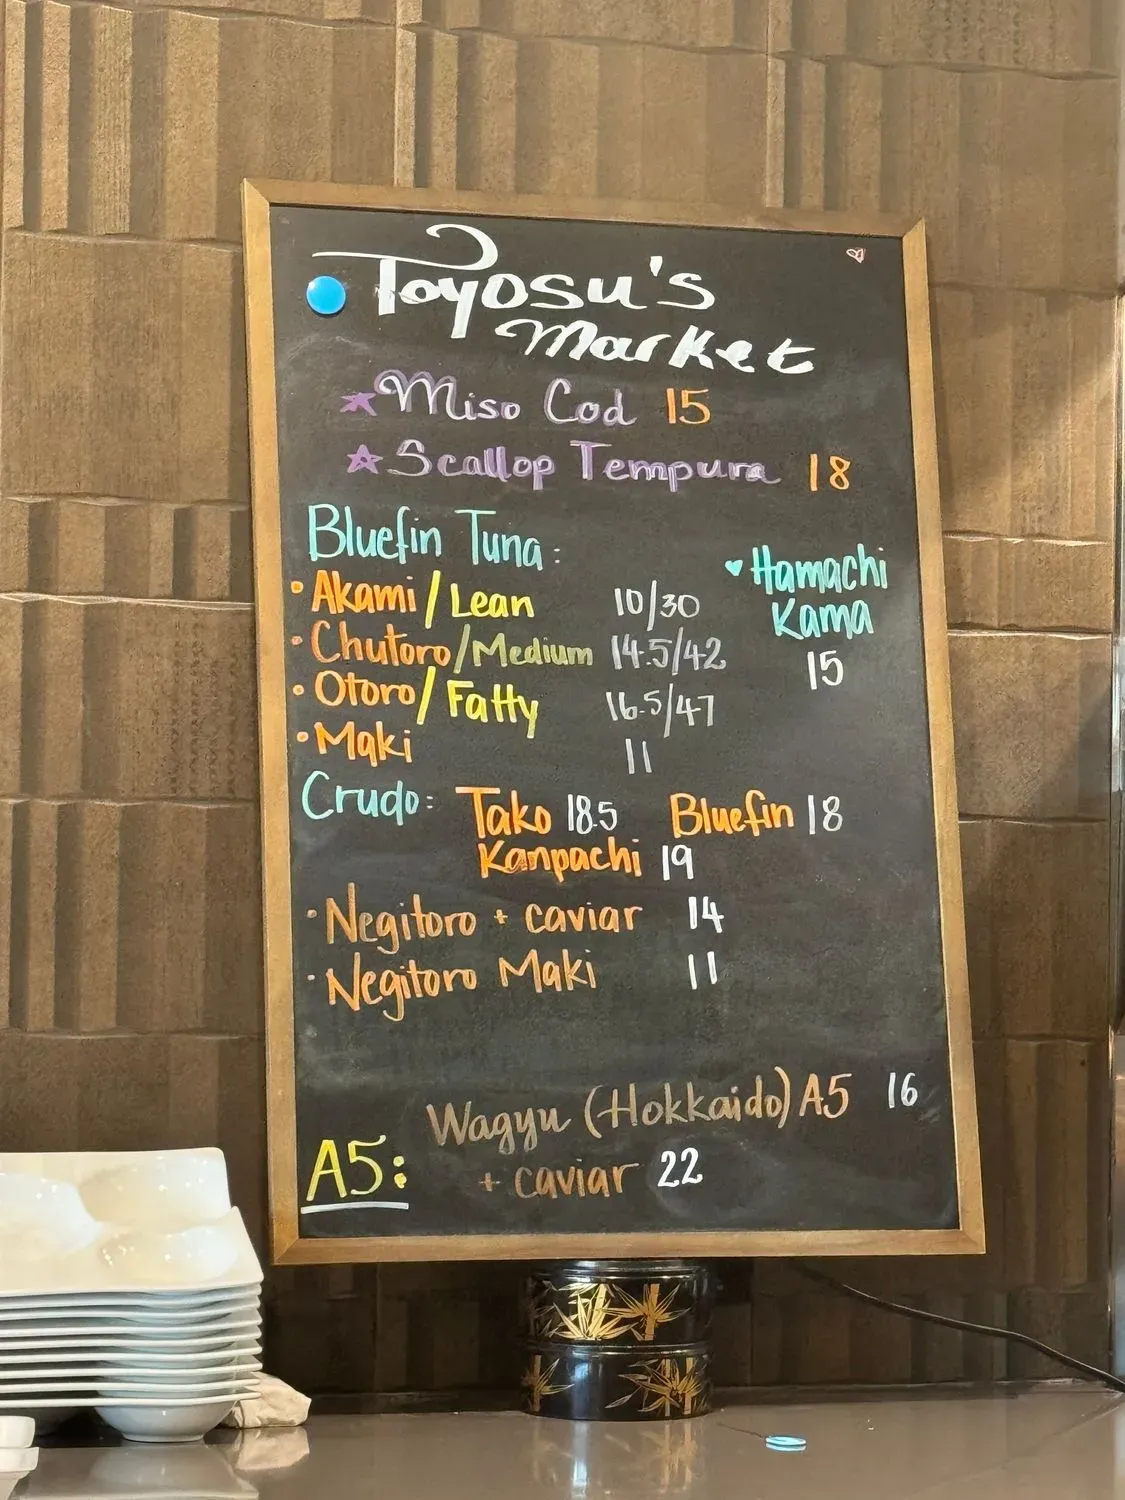 Toyosu's
Market
Miso Cod 15
Scallop Tempura 18
Bluefin Tuna:
• Akami / Lean 10/30
• Chutoro / Medium 14.5/42
• Otoro / Fatty 16.5/47
• Maki 11
♥ Hamachi
Kama
15
Crudo: Tako 18.5 Bluefin 18
Kanpachi 19
• Negitoro + caviar 14
• Negitoro Maki 11
Wagyu (Hokkaido) A5 16
A5:
+ caviar 22